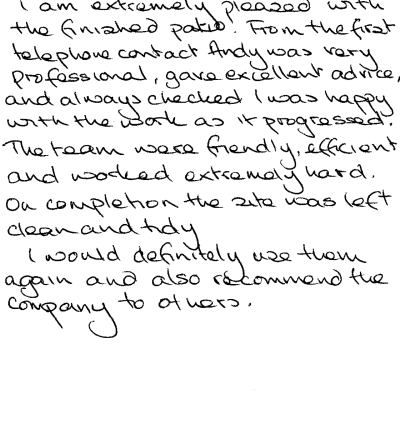 I am extremely pleased with
the finished patio. From the first
telephone contact Andy was very
professional, gave excellent advice,
and always checked I was happy
with the work as it progressed.
The team were friendly, efficient
and worked extremely hard.
On completion the site was left
clean and tidy
I would definitely use them
again and also recommend the
company to others.